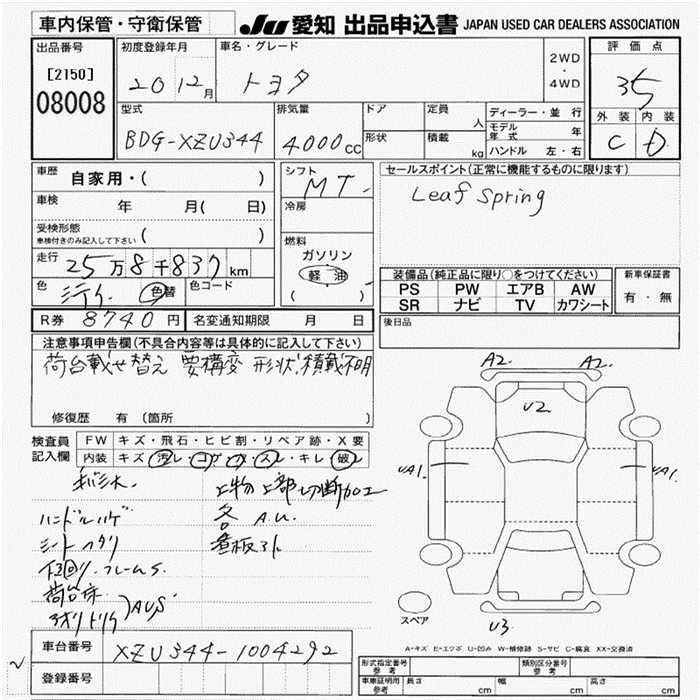 車内保管・守衛保管
JU 愛知 出品申込書 JAPAN USED CAR DEALERS ASSOCIATION
出品番号
[2150]
08008
初度登録年月
20 12月
車名・グレード
トヨタ
2WD
・
4WD
評価点
3.5
外装 内装
C D
型式
BDG-XZU344
排気量
4.000cc
ドア
形状
定員 人
積載 kg
ディーラー・並行
モデル年式 年
ハンドル 左・右
車歴 自家用・( )
車検 年 月( 日)
受検形態
車検付きのみ記入して下さい ( )
走行 25万8千837km
色 色替 色コード
シフト
MT
冷房
燃料
ガソリン
軽油
( )
セールスポイント(正常に機能するものに限ります)
Leaf Spring
装備品(純正品に限り○をつけてください)
PS PW エアB AW
SR ナビ TV カワシート
新車保証書
有・無
R券 8740円 名変通知期限 月 日
後日品
注意事項申告欄(不具合内容等は具体的に記入して下さい)
荷台載せ替え 要構変 形状、積載不明
修復歴 有(箇所 )
検査員記入欄
FW キズ・飛石・ヒビ割・リペア跡・X要
内装 キズ・汚レ・コゲ・穴・スレ・キレ・破レ
ハンドルハゲ
シートヘタリ
下回り、フレームS.
荷台床
アオリトリケ AUS
上物上部切断加工
各A.U.
看板引
A2. A2.
U2
UA1. UA1.
U3
スペア
A-キズ E-エクボ U-凹み W-補修跡 S-サビ C-腐食 XX-交換済
車台番号 XZU344-1004292
登録番号
型式指定番号 参考
類別区分番号 参考
車庫証明用 参考 長さ cm 幅 cm 高さ cm